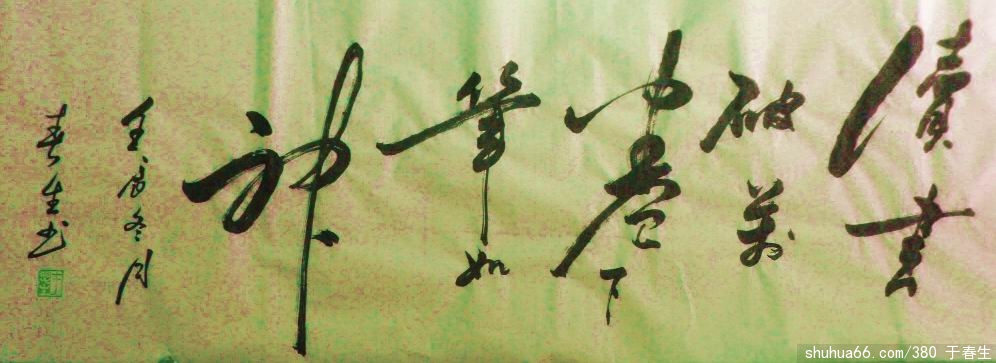 讀書
破萬
卷下
筆如
神
壬辰冬月
春生书
shuhua66.com/380 于春生